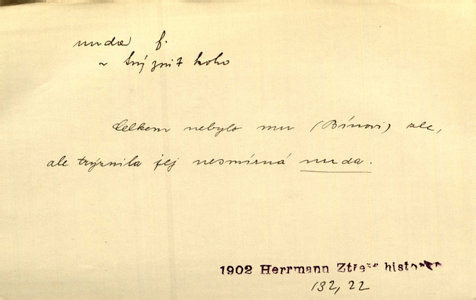 nuda f.
~ trýznit koho
Celkem nebylo mu (Bínovi) zle,
ale trýznila jej nesmírná nuda.
1902 Herrmann Ztřešť histor
132, 22